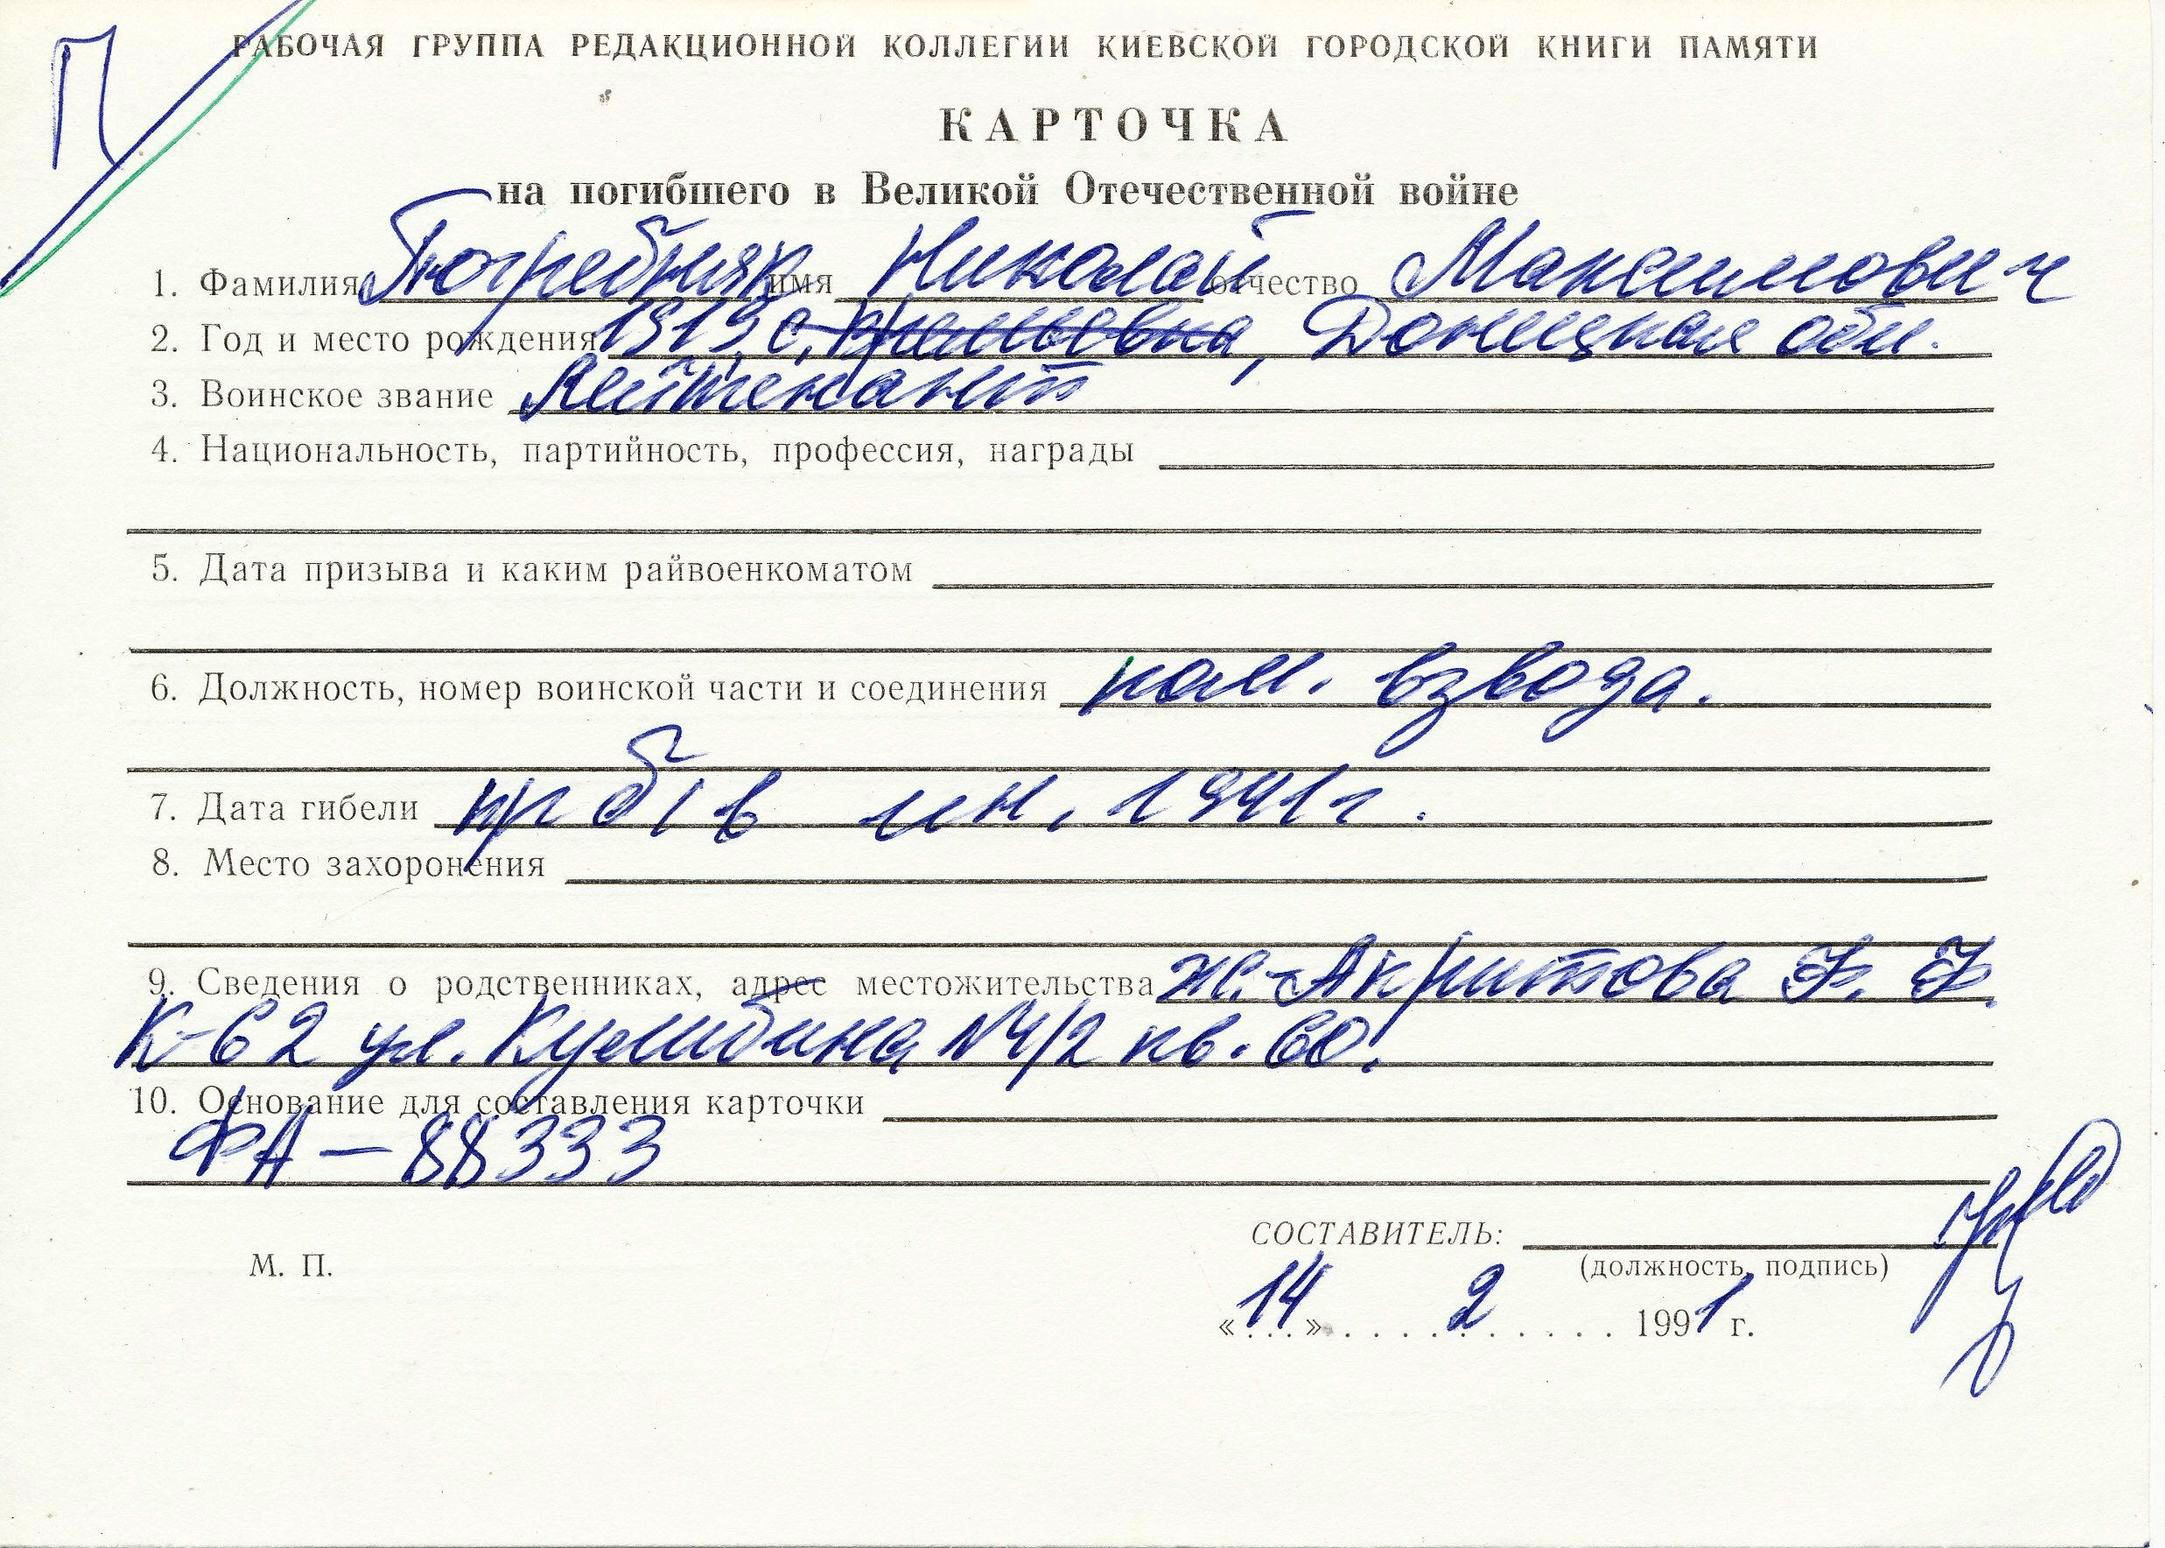 П
РАБОЧАЯ ГРУППА РЕДАКЦИОННОЙ КОЛЛЕГИИ КИЕВСКОЙ ГОРОДСКОЙ КНИГИ ПАМЯТИ
КАРТОЧКА
на погибшего в Великой Отечественной войне
1. Фамилия Погребняк имя Николай отчество Максимович
2. Год и место рождения 1919, с. Донецкая обл.
3. Воинское звание Лейтенант
4. Национальность, партийность, профессия, награды
5. Дата призыва и каким райвоенкоматом
6. Должность, номер воинской части и соединения ком. взвода.
7. Дата гибели пр б/в 1941 г.
8. Место захоронения
9. Сведения о родственниках, адрес местожительства ж. - Акритова Ф. Ф.
К-62 ул. Кулибина N 4/2 кв. 60.
10. Основание для составления карточки
ФА — 88333
СОСТАВИТЕЛЬ:
М. П.
(должность, подпись)
« 14 » 2 1991 г.